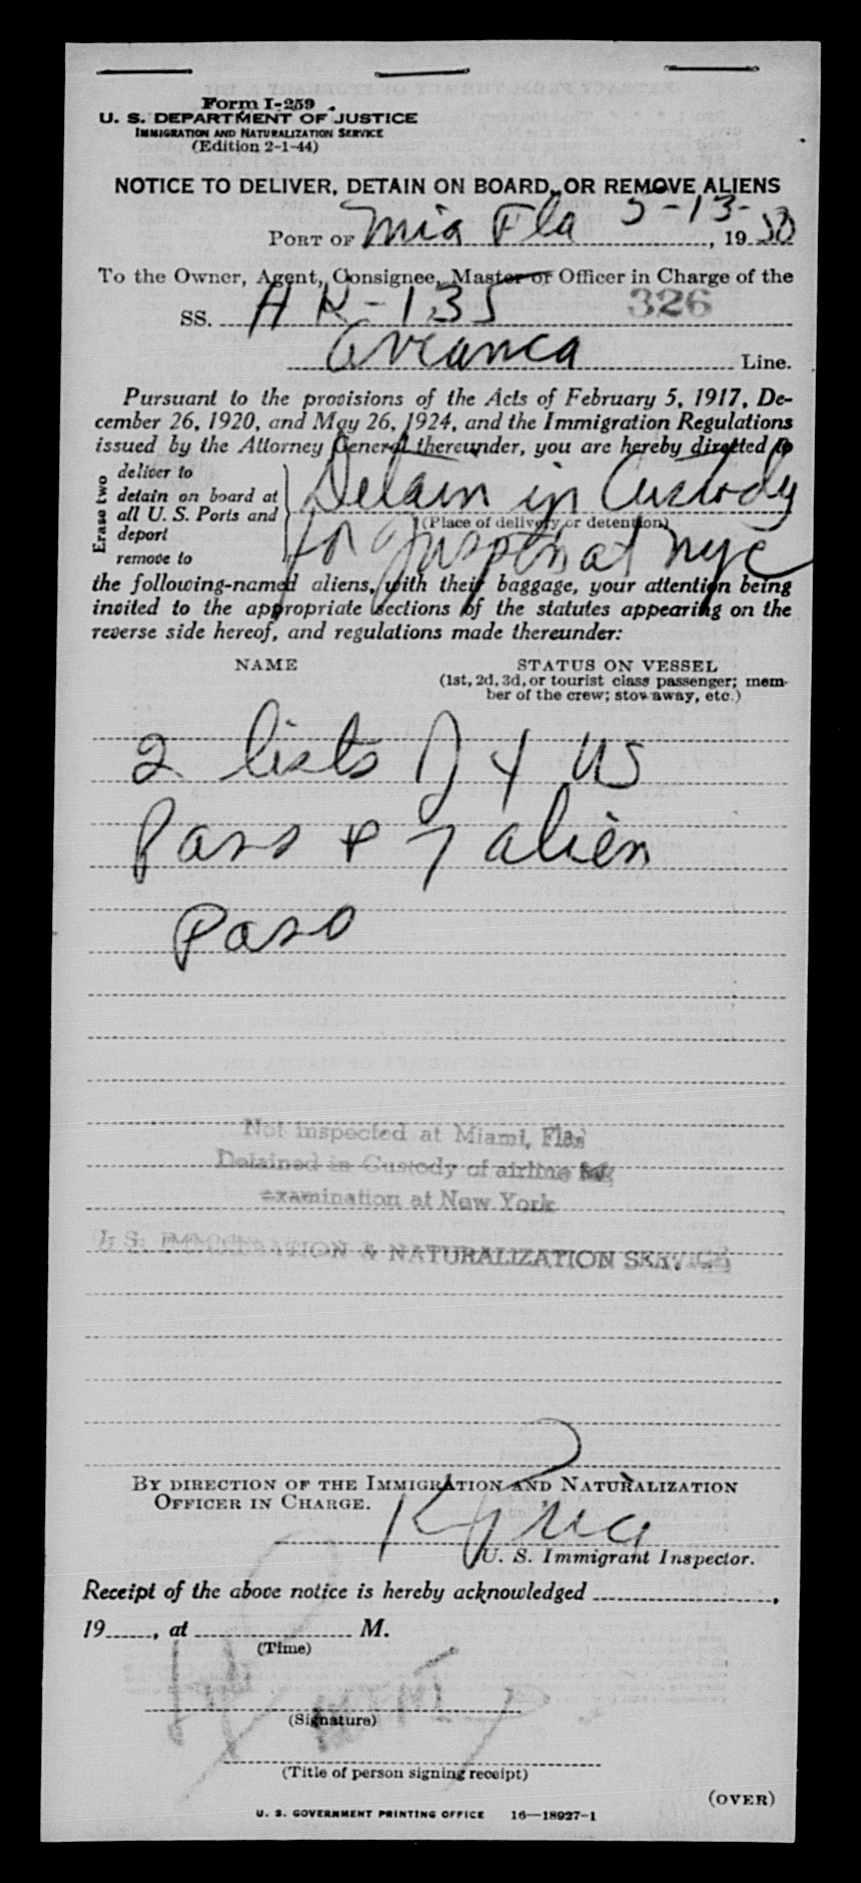 Form I-259
U. S. DEPARTMENT OF JUSTICE
IMMIGRATION AND NATURALIZATION SERVICE
(Edition 2-1-44)
NOTICE TO DELIVER, DETAIN ON BOARD, OR REMOVE ALIENS
PORT OF Mia Fla 5-13-, 1950
To the Owner, Agent, Consignee, Master or Officer in Charge of the
SS. HK-135 326
Avianca Line.
Pursuant to the provisions of the Acts of February 5, 1917, De-
cember 26, 1920, and May 26, 1924, and the Immigration Regulations
issued by the Attorney General thereunder, you are hereby directed to
Erase two
deliver to
detain on board at
all U. S. Ports and
deport
remove to
Detain in Custody
(Place of delivery or detention)
for Inspctn at nyc
the following-named aliens, with their baggage, your attention being
invited to the appropriate sections of the statutes appearing on the
reverse side hereof, and regulations made thereunder:
NAME
STATUS ON VESSEL
(1st, 2d, 3d, or tourist class passenger; mem-
ber of the crew; stowaway, etc.)
2 lists of 4 US
Pass & 7 alien
Pass
Not inspected at Miami, Fla.
Detained in Custody of airline for
examination at New York
U.S. IMMIGRATION & NATURALIZATION SERVICE
BY DIRECTION OF THE IMMIGRATION AND NATURALIZATION
OFFICER IN CHARGE.
U. S. Immigrant Inspector.
Receipt of the above notice is hereby acknowledged ,
19 , at M.
(Time)
(Signature)
(Title of person signing receipt)
(OVER)
U. S. GOVERNMENT PRINTING OFFICE 16—18927-1